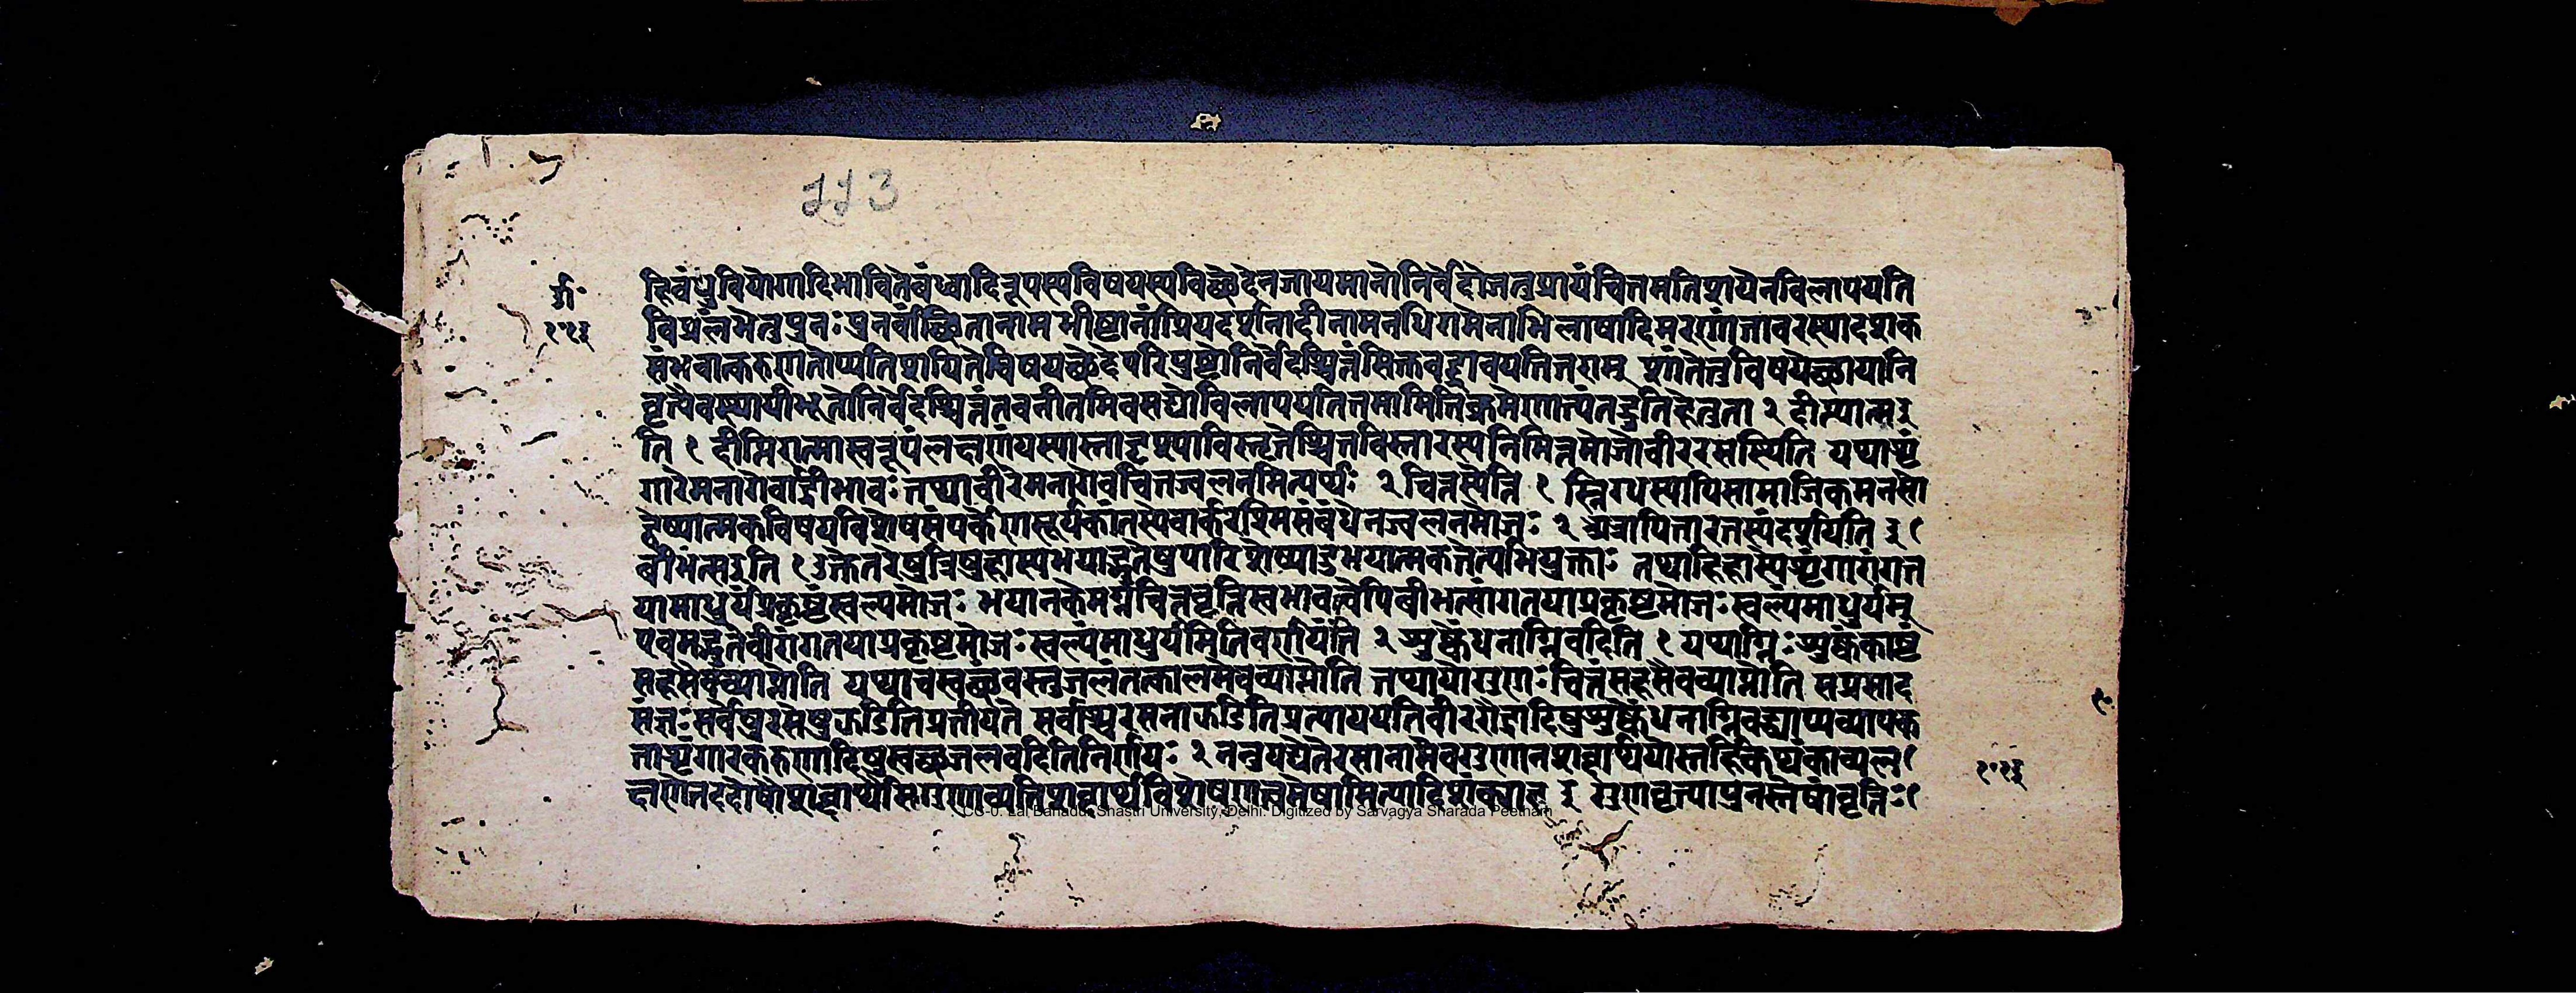 113
हि बंधुवियोगादिभावितबंध्वादिरूपस्यविषयस्यविच्छेदेनजायमानोनिर्वेदोजतुप्रायंचित्तमतिशयेनविलापयति
विप्रलंभेतुपुनः पुनर्वांच्छितानामभीष्टानांप्रियदर्शनादीनामनधिगमेनाभिलाषादिमरणांतावस्थादशक
संभवात्करुणतोप्यतिशयितेविषयच्छेदपरिपुष्टोनिर्वेदश्चित्तंसिक्तवद्द्रावयतितराम् शांतेतुविषयेच्छायानि
वृत्त्यैवस्थायीभूतोनिर्वेदश्चित्तंनवनीतमिवसद्योविलापयतितमामितिक्रमेणात्यंतद्रुतिहेतुता २ दीप्त्यात्मइ
ति १ दीप्तिरात्मास्वरूपंलक्षणंयस्यास्तादृश्याविस्तृतेश्चित्तविस्तारस्यनिमित्तमोजोवीररसस्थिति यथाशृं
गारेमनागेवार्द्रीभावः तथावीरेमनागेवचित्तज्वलनमित्यर्थः २ चित्तस्येति १ स्निग्धस्यापिसामाजिकमनसो
द्वेष्यात्मकविषयविशेषसंपर्केणसूर्यकांतस्येवार्करश्मिसंबंधेनज्वलनमोजः २ अत्रापितारतम्यंदर्शयति
बीभत्सइति १ उक्तेतरेषुत्रिषुहास्यभयाद्भुतेषुपारिशेष्यादुभयात्मकतेत्यभियुक्ताः तथाहिहास्येशृंगारांगत
यामाधुर्यंप्रकृष्टंस्वल्पमोजः भयानकेमग्नचित्तवृत्तिस्वभावत्वेपिबीभत्सांगतयाप्रकृष्टमोजः स्वल्पंमाधुर्यम्
एवमद्भुतेवीरांगतयाप्रकृष्टमोजः स्वल्पंमाधुर्यमितिवर्णयंति २ शुष्केंधनाग्निवदिति १ यथाग्निः शुष्कंकाष्टं
सहसैवव्याप्नोति यथाचस्वच्छवस्तुजलंतत्कालमेवव्याप्नोति तथायोगुणः चित्तंसहसैवव्याप्नोति सप्रसाद
संज्ञः सर्वेषुरसेषुझडितिप्रतीयते सर्वांश्चरसनाझडितिप्रत्याययतिवीररौद्रादिषुशुष्केंधनाग्निवद्व्याप्यव्यापक
ताशृंगारकरुणादिषुस्वच्छजलवदितिनिर्णयः २ ननुयद्येतेरसानामेवगुणानशब्दार्थयोस्तर्हिकथंकाव्यल
क्षणेतददोषौशब्दार्थौसगुणाव्यतिशब्दार्थविशेषणत्वमेषामित्यादिशंक्याह इ गुणवृत्त्यापुनस्तेषांवृत्तिः
CC-0. Lal Bahadur Shastri University, Delhi. Digitized by Sarvagya Sharada Peetham